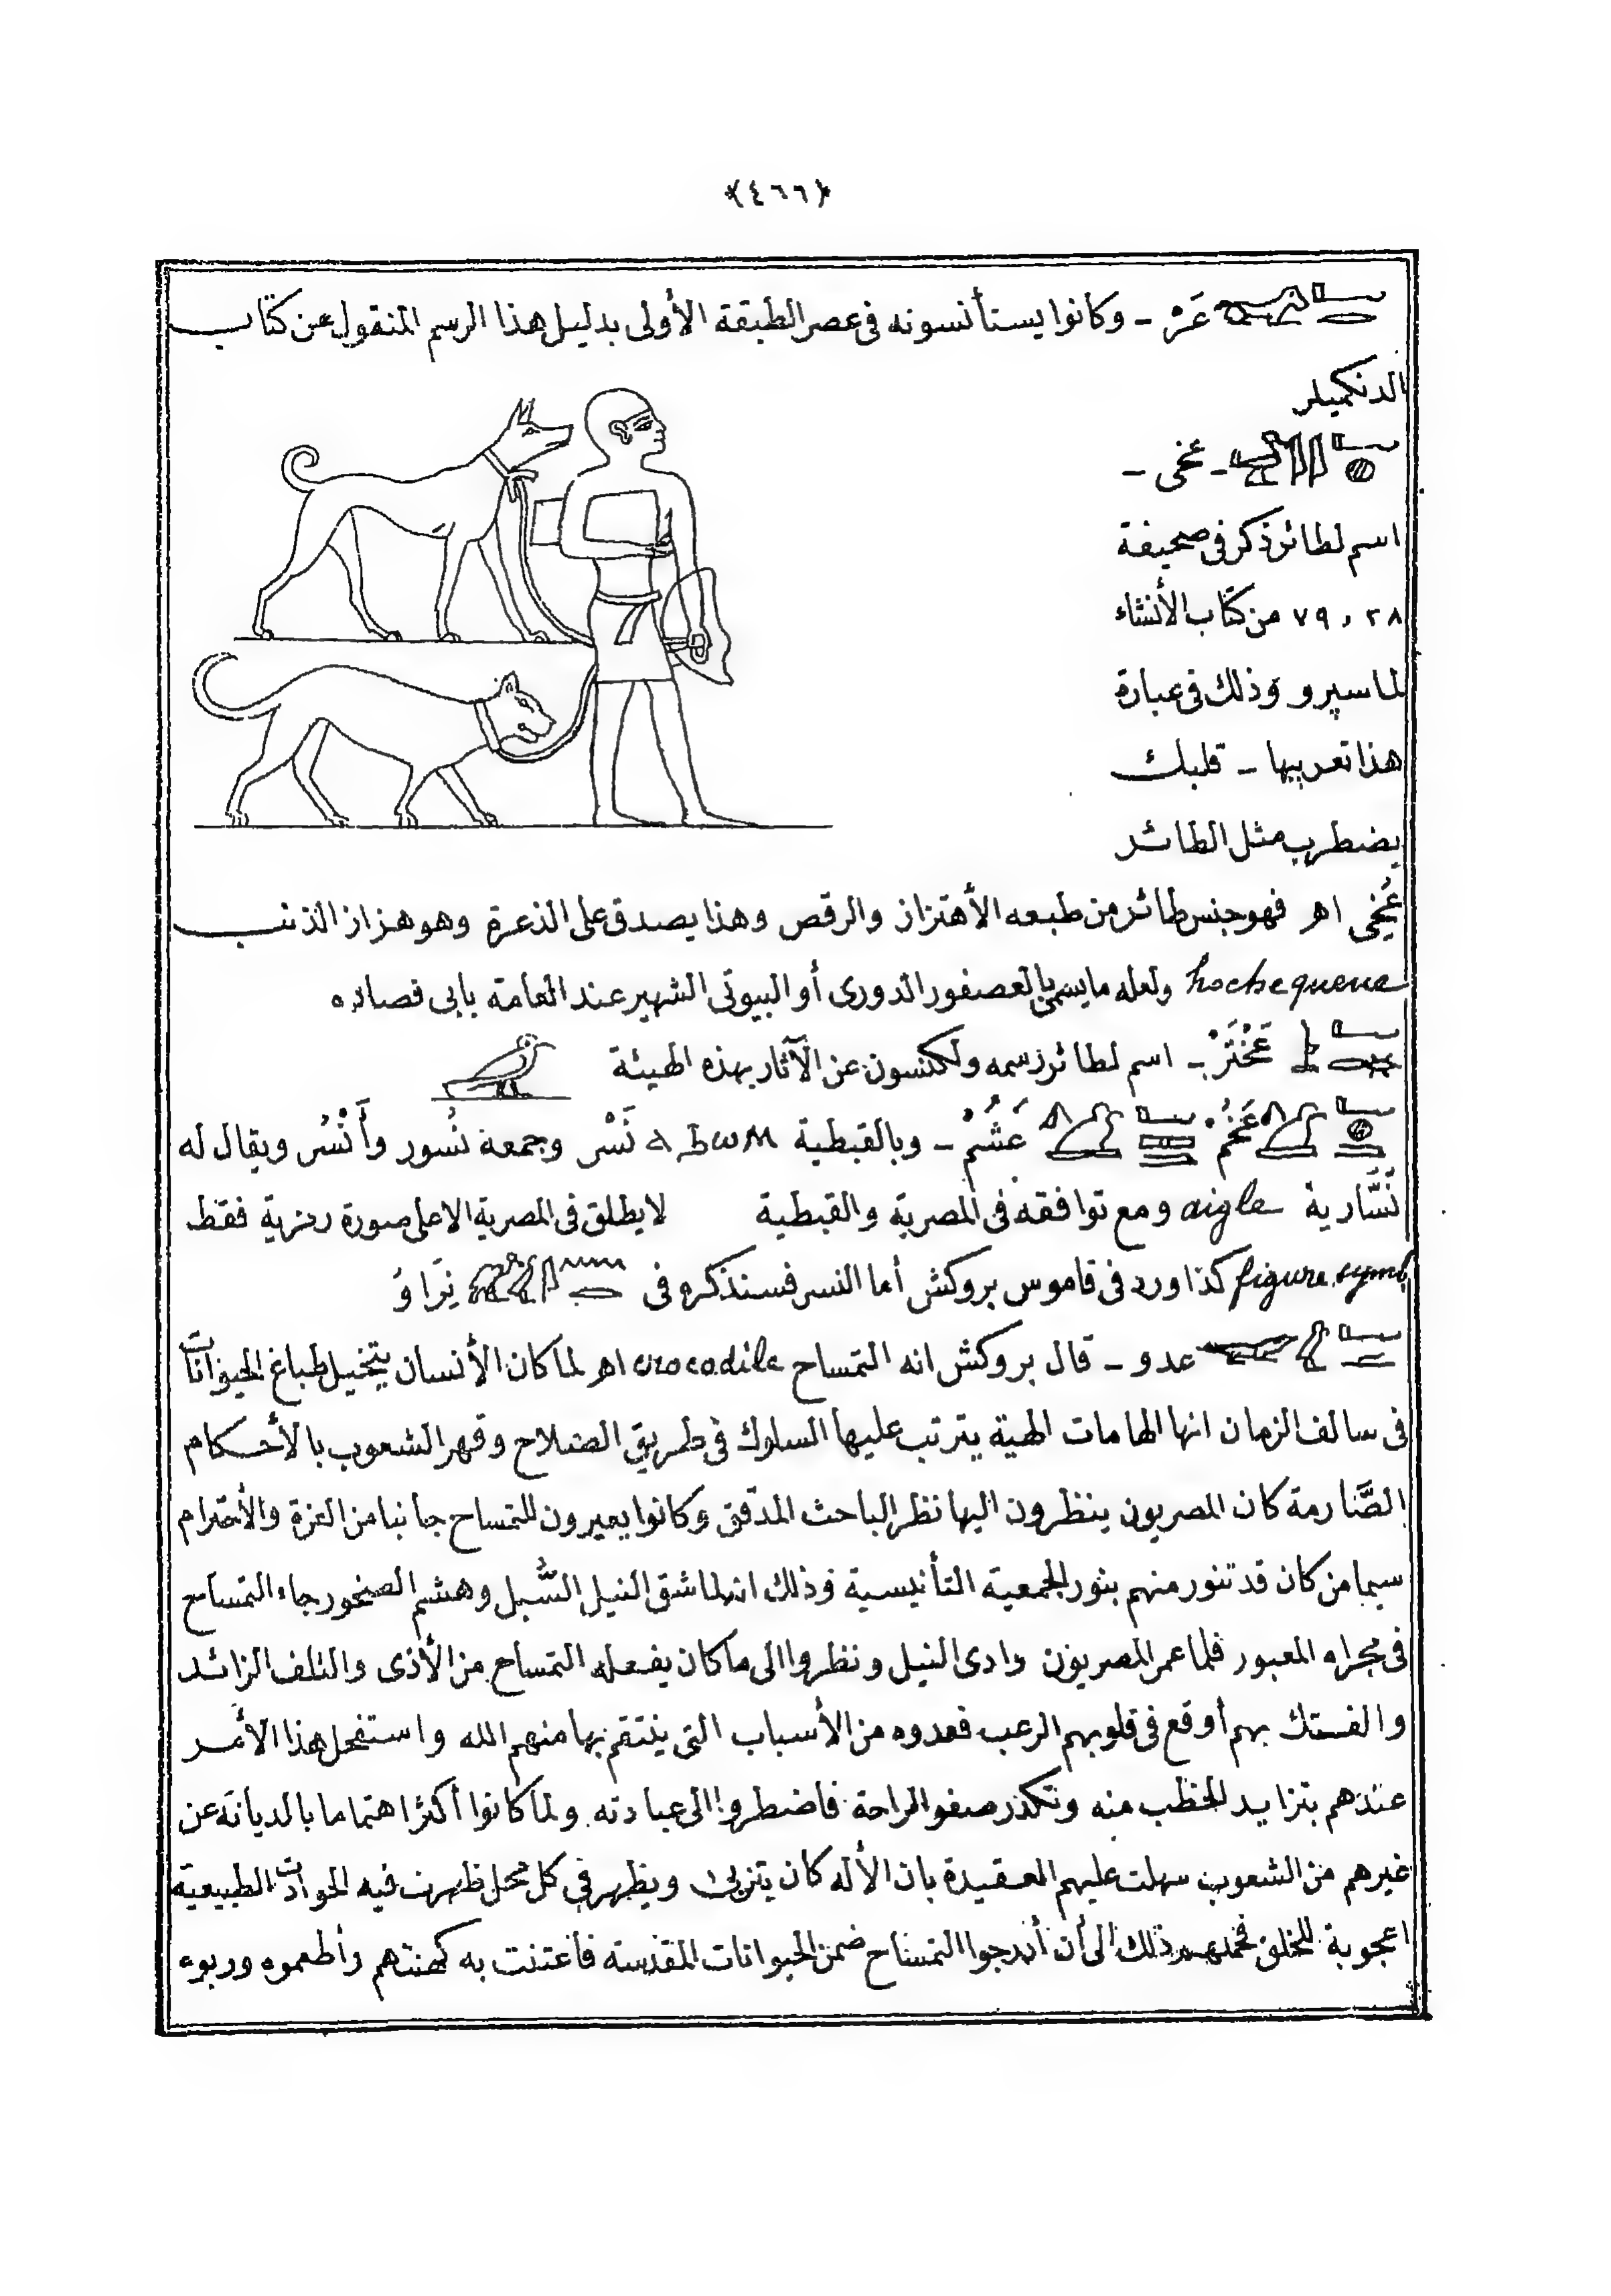 ﴿٤٦٦﴾
عَرْ - وكانوا يستأنسونه فى عصر الطبقة الأولى بدليل هذا الرسم المنقول عن كتاب
الدنكميلر
- عخى -
اسم لطائر ذكر فى صحيفة
٢٨ و ٧٩ من كتاب الأنشاء
لماسپرو وذلك فى عبارة
هذا تعريبها - قلبك
يضطرب مثل الطائر
عُخِى اهر فهو جنس طائر من طبعه الأهتزاز والرقص وهذا يصدق على الذعرة وهو هزاز الذنب
hochequeue ولعله ما يسمى بالعصفور الدورى أو البيوتى الشهير عند العامة بابى فصاده
عَخْتَرْ - اسم لطائر رسمه ولكنسون عن الآثار بهذه الهيئة
عَخُمْ عَشُمْ - وبالقبطية ⲁϧⲱⲙ نَسْر وجمعه نُسور وأَنْسُر ويقال له
نَسَّارية aigle ومع توافقه فى المصرية والقبطية لا يطلق فى المصرية الا على صورة رمزية فقط
figure symb. كذا ورد فى قاموس بروكش أما النسر فسنذكره فى نِرَاوُ
عدو - قال بروكش انه التمساح crocodile اهر لما كان الأنسان يتخيل طباع الحيوانات
فى سالف الزمان انها الهامات الهية يترتب عليها السلوك فى طريق الصلاح وقهر الشعوب بالأحكام
الصَّارمة كان المصريون ينظرون اليها نظر الباحث المدقق وكانوا يعيرون للتمساح جانبا من العزة والأحترام
سيما من كان قد تنور منهم بنور الجمعية التأنيسية وذلك انه لما شق النيل السُّبل وهشم الصخور جاء التمساح
فى مجراه المعبور فلما عمر المصريون وادى النيل ونظروا الى ما كان يفعله التمساح من الأذى والتلف الزائد
والفتك بهم أوقع فى قلوبهم الرعب فعدوه من الأسباب التى ينتقم بها منهم الله واستفحل هذا الأمر
عندهم بتزايد الخطب منه وتكدر صفو الراحة فاضطروا الى عبادته ولما كانوا أكثر اهتماما بالديانة عن
غيرهم من الشعوب سهلت عليهم العقيدة بان الأله كان يتزيى ويظهر فى كل محل ظهرت فيه الحوادث الطبيعية
اعجوبة للخلق فحملهم ذلك الى أن أدرجوا التمساح ضمن الحيوانات المقدسة فاعتنت به كهنتهم وأطعموه وربوه